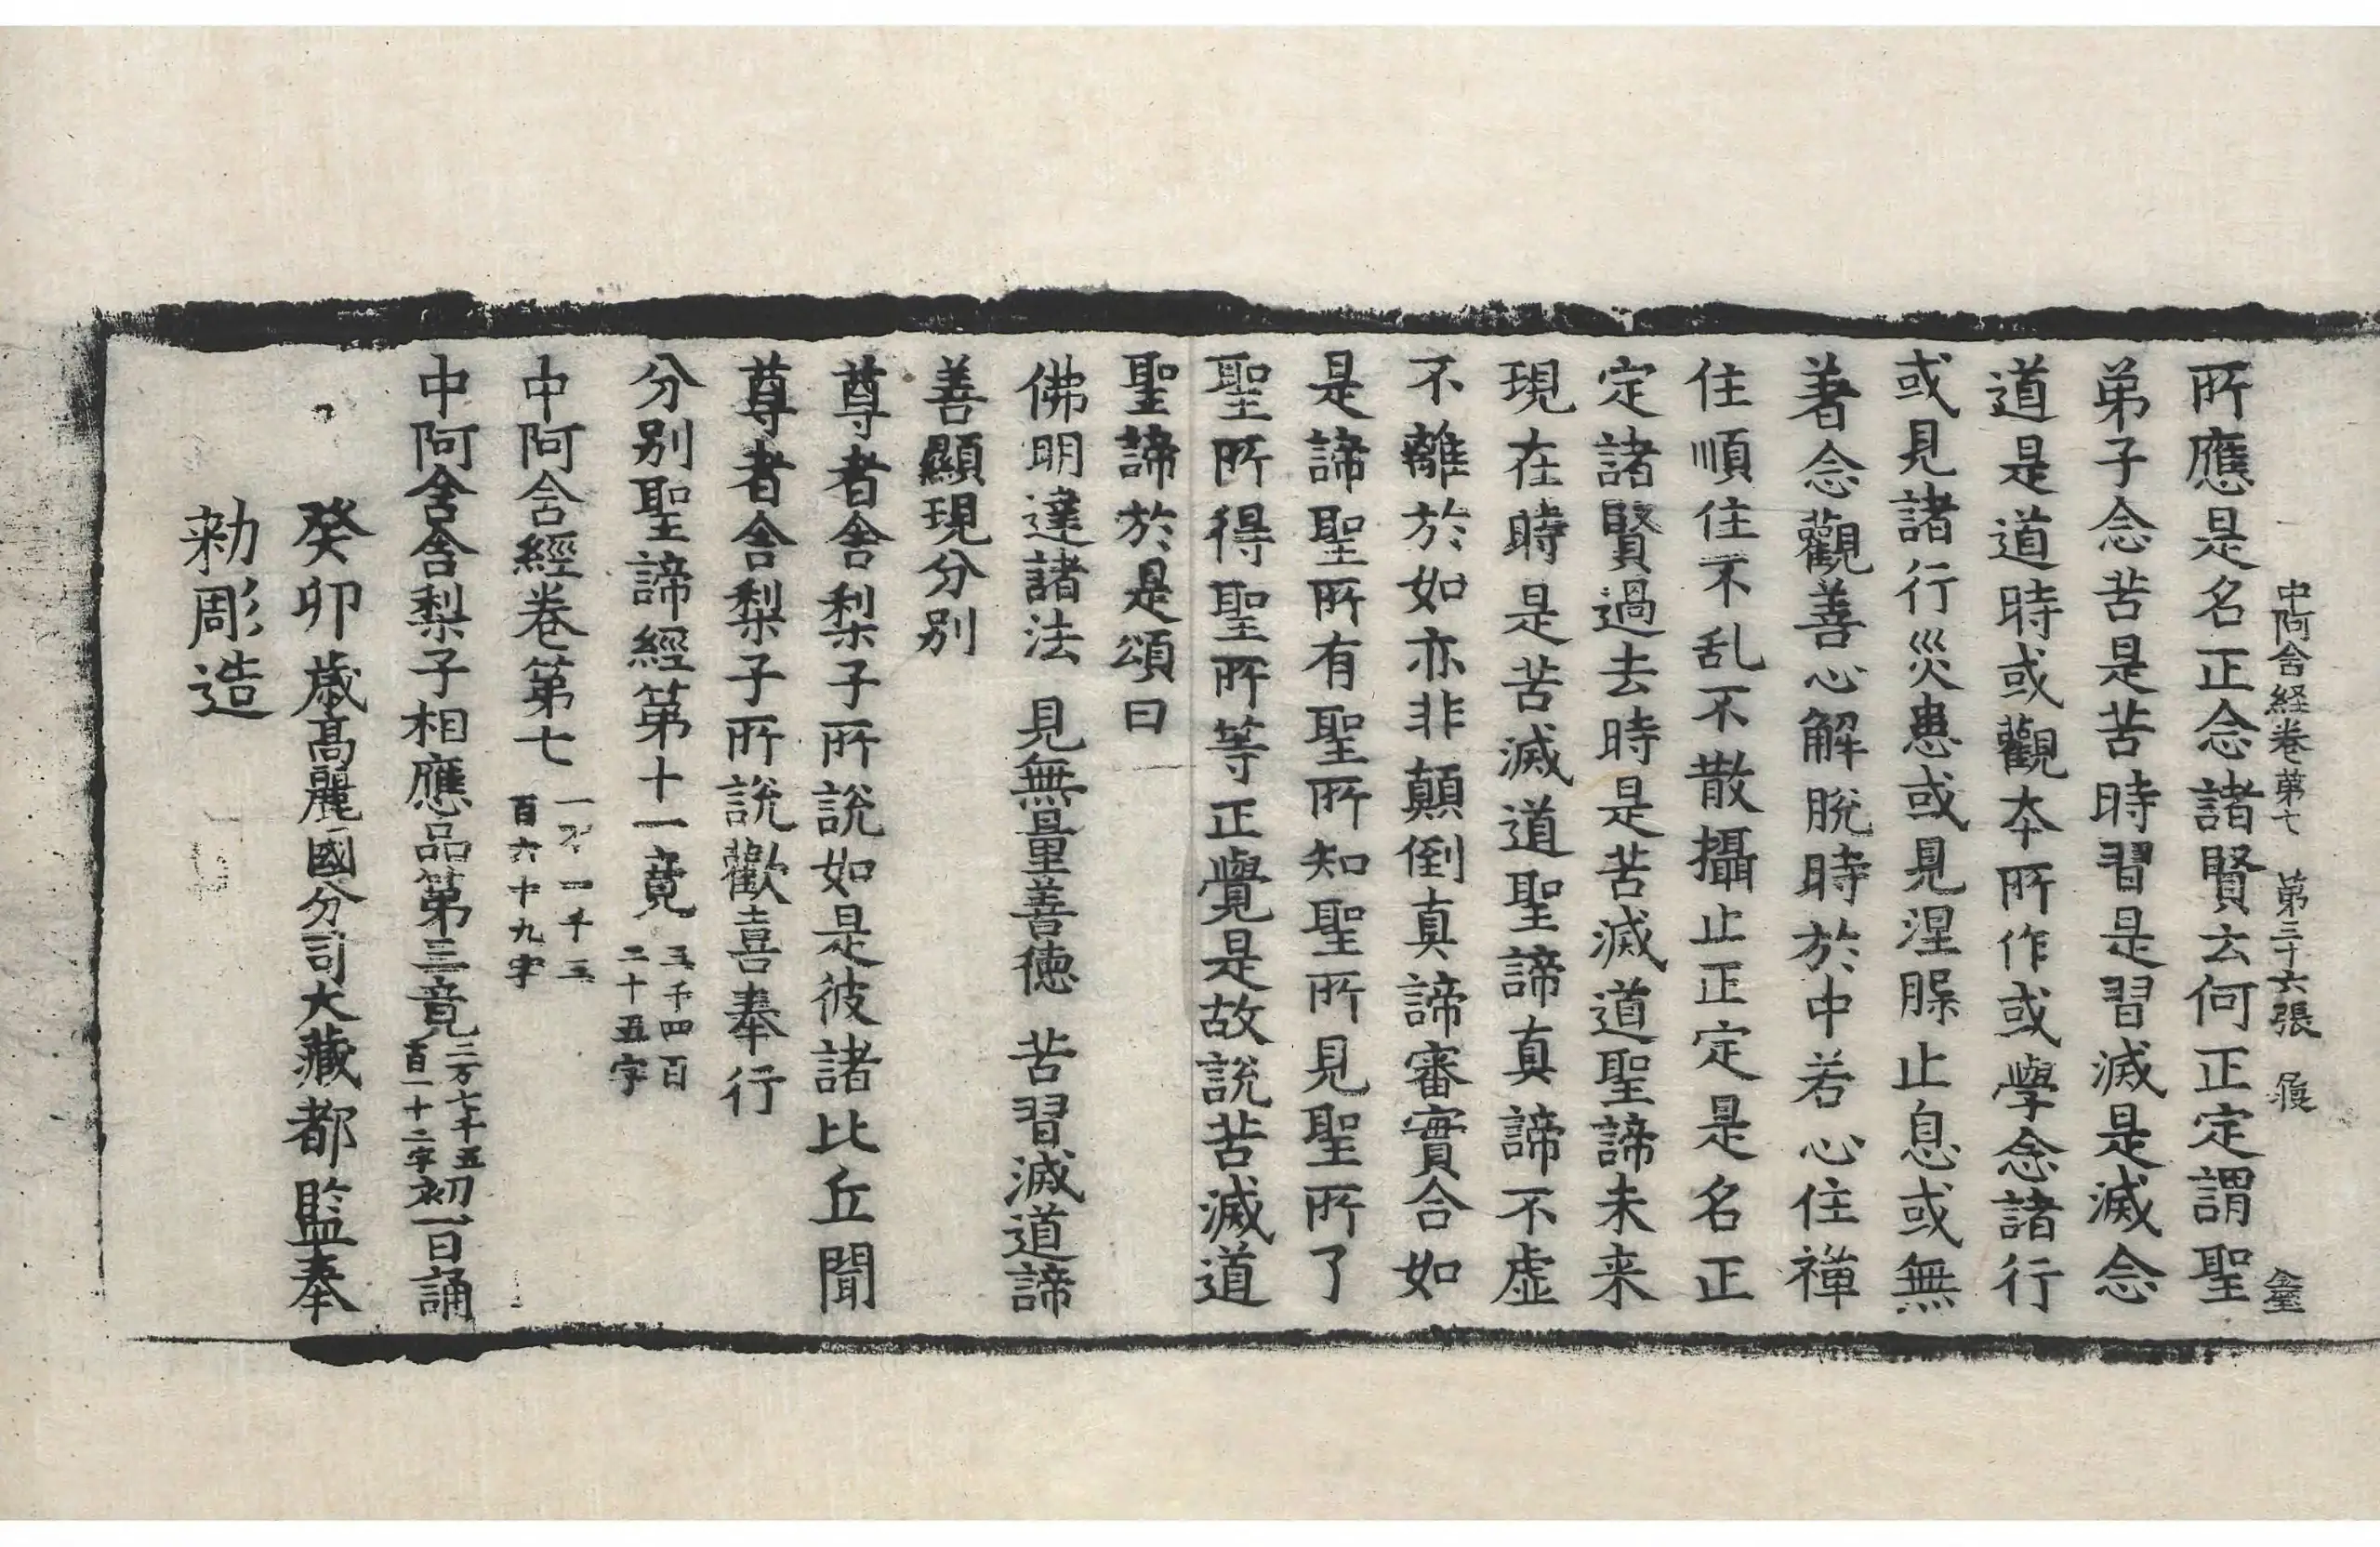 中阿含経卷第七 第三十六張
所應是名正念諸賢云何正定謂聖
弟子念苦是苦時習是習滅是滅念
道是道時或觀夲所作或學念諸行
或見諸行災患或見涅脲止息或無
著念觀善心解脫時於中若心住禪
住順住不乱不散攝止正定是名正
定諸賢過去時是苦滅道聖諦未来
現在時是苦滅道聖諦真諦不虛
不離於如亦非顛倒真諦審實合如
是諦聖所有聖所知聖所見聖所了
聖所得聖所等正覺是故說苦滅道
聖諦於是頌曰
佛明達諸法 見無量善德 苦習滅道諦
善顯現分別
尊者舍梨子所說如是彼諸比丘聞
尊者舍梨子所說歡喜奉行
分別聖諦經第十一竟 五千四百
二十五字
中阿含經卷第七 一万一千五
百六十九字
中阿含舍梨子相應品第三竟 二万七千五
百一十二字 初一日誦
癸卯歳高麗國分司大藏都監奉
勑彫造